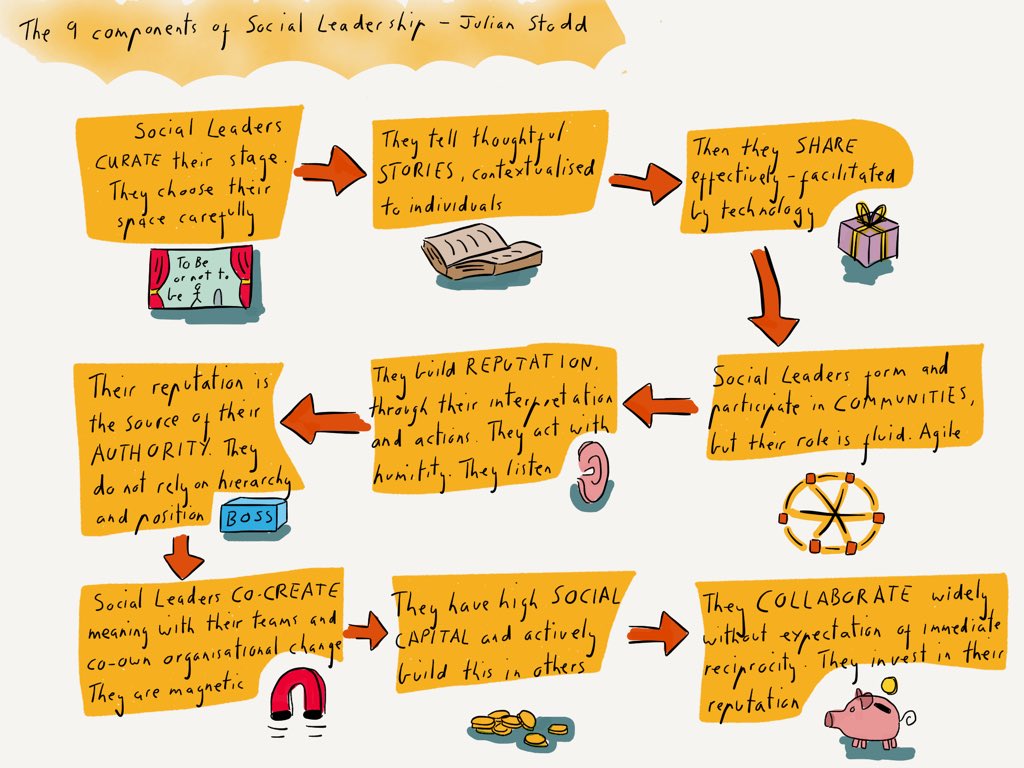 The 9 components of Social Leadership - Julian Stodd
Social Leaders
CURATE their stage.
They choose their
space carefully
To Be
or not to
be
They tell thoughtful
STORIES, contextualised
to individuals
Then they SHARE
effectively - facilitated
by technology
Social Leaders form and
participate in COMMUNITIES,
but their role is fluid. Agile
They build REPUTATION,
through their interpretation
and actions. They act with
humility. They listen
Their reputation is
the source of their
AUTHORITY. They
do not rely on hierarchy
and position
BOSS
Social Leaders CO-CREATE
meaning with their teams and
co-own organisational change
They are magnetic
They have high SOCIAL
CAPITAL and actively
build this in others
They COLLABORATE widely
without expectation of immediate
reciprocity. They invest in their
reputation